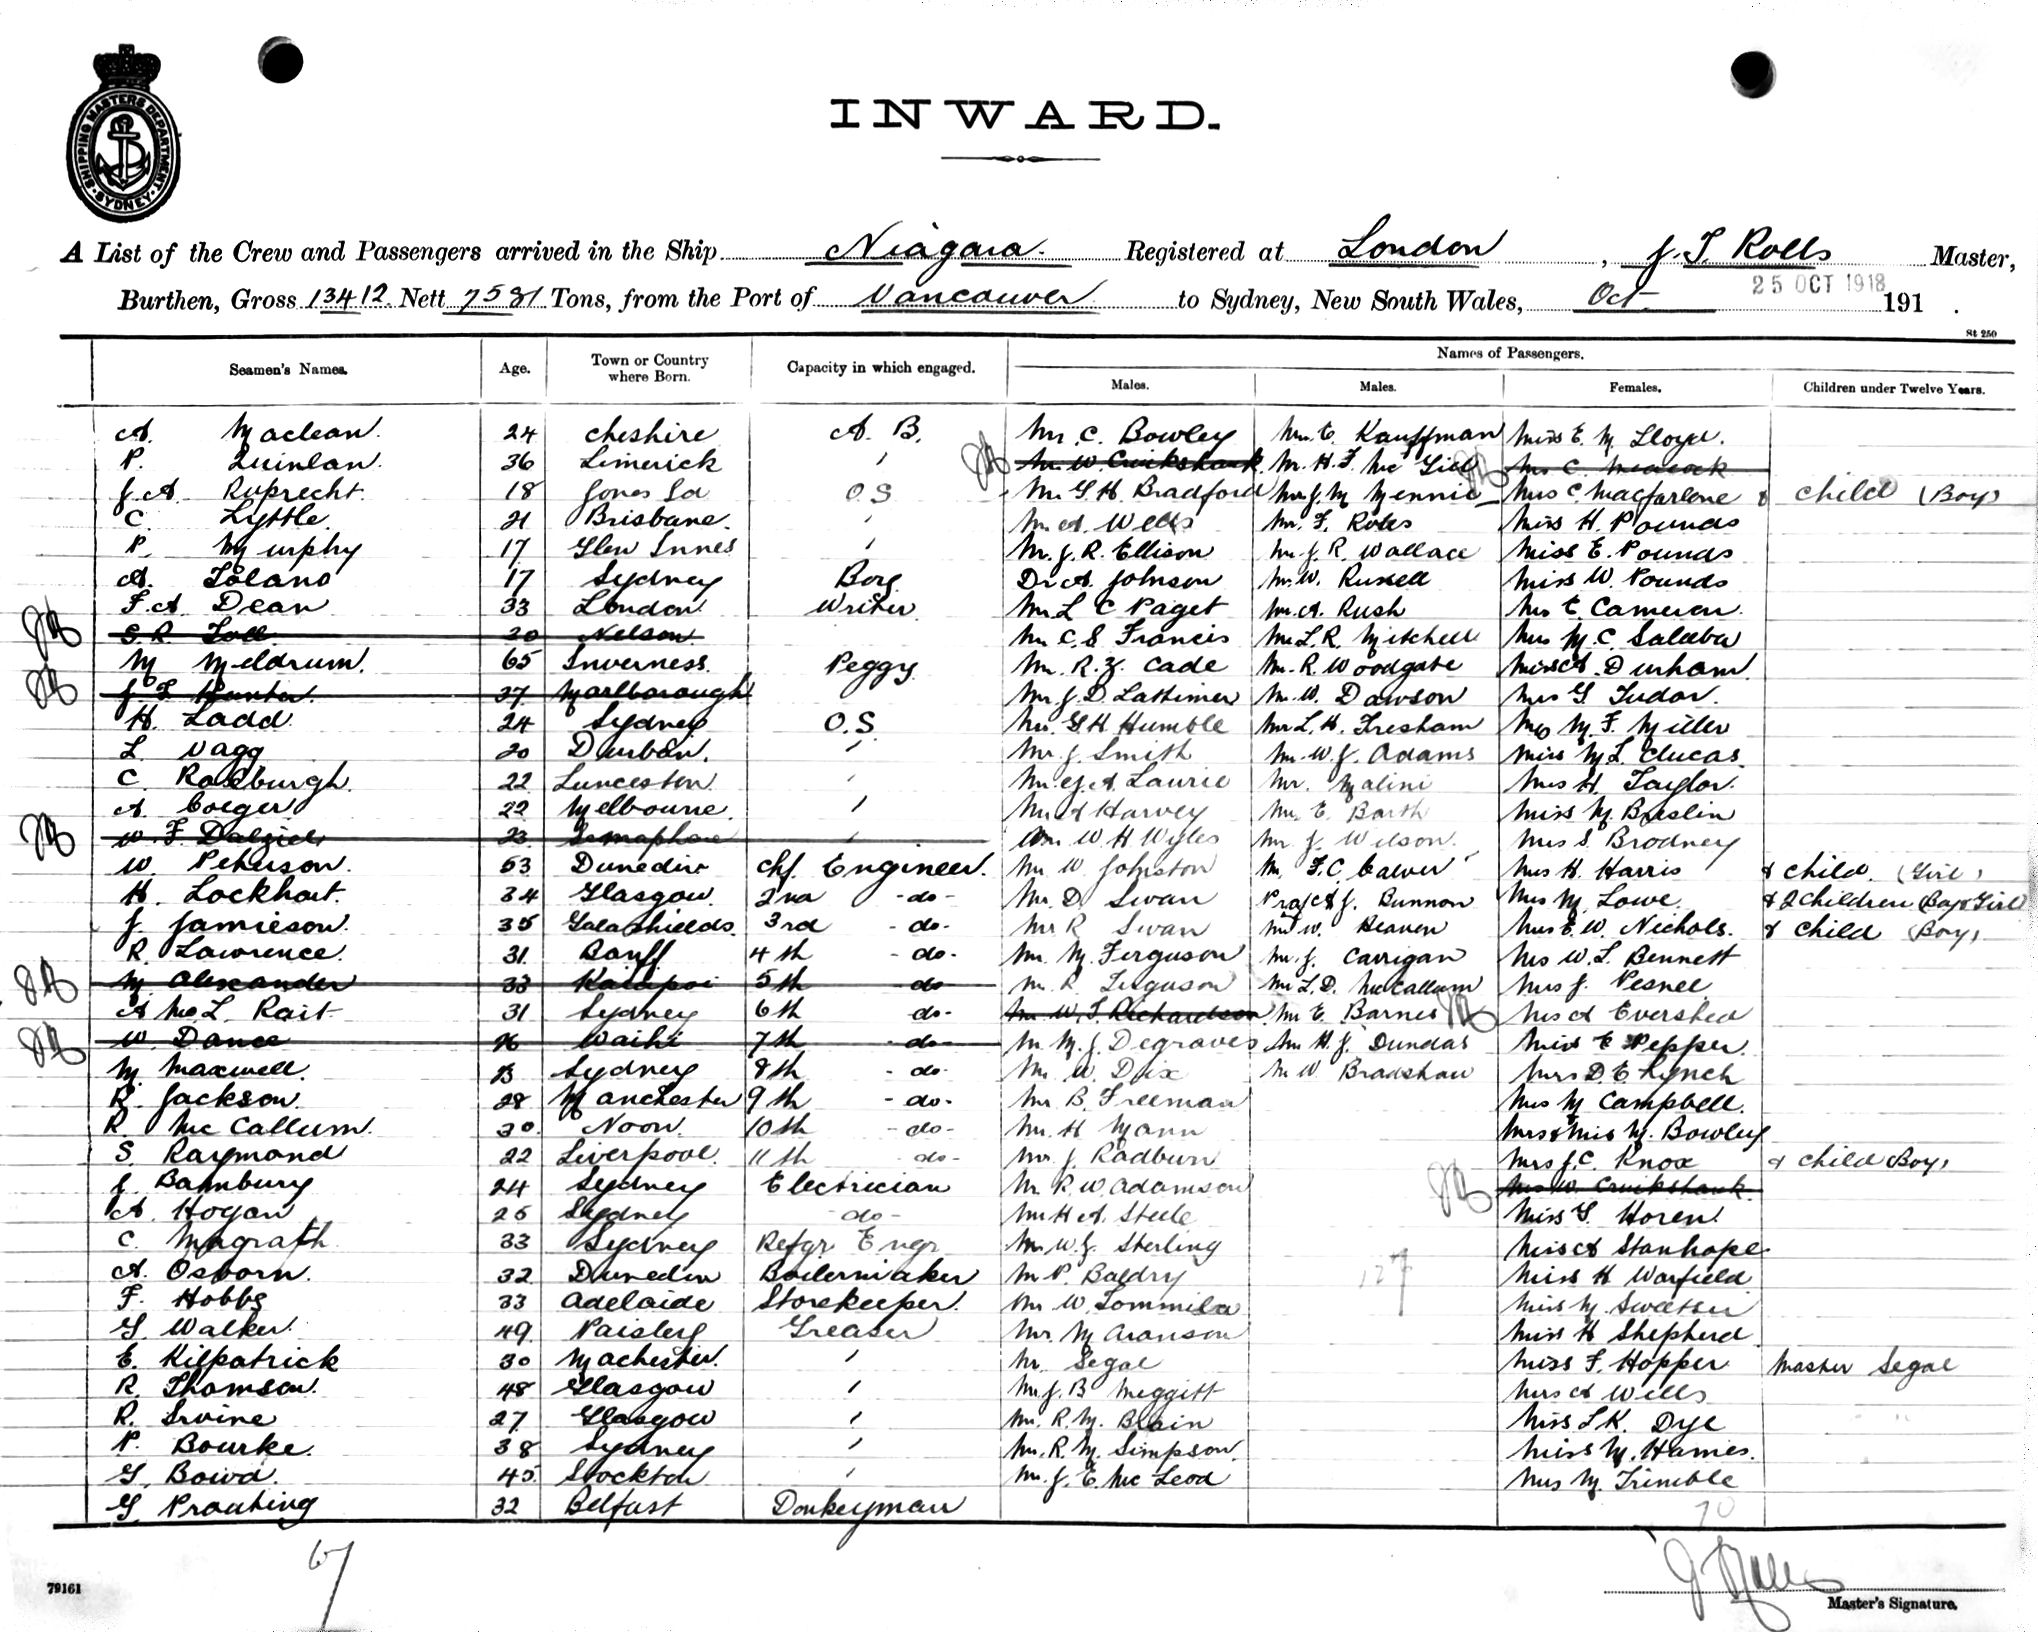 SHIPPING MASTERS DEPARTMENT SYDNEY
INWARD.
A List of the Crew and Passengers arrived in the Ship Niagara. Registered at London, J. T. Rolls Master,
Burthen, Gross 13412. Nett 7581 Tons, from the Port of Vancouver to Sydney, New South Wales, Oct 25 OCT 1918 191 .
St 250
Seamen's Names. Age. Town or Country where Born. Capacity in which engaged. Names of Passengers.
Males. Males. Females. Children under Twelve Years.
A. Maclean. 24 Cheshire A. B. Mr. C. Bowley Mr. E. Kauffman Miss E. M. Lloyd.
P. Quinlan. 36 Limerick ' Mr. W. Cruikshank Mr. H. F. McGill Mrs C.
J. A. Ruprecht. 18 O S Mr. G. H. Bradford Mr. J. M. Mennie Mrs C. Macfarlane & child (Boy)
C. Lyttle. 21 Brisbane. ' Mr. A. Wells Mr. F. Roles Miss H. Pounds
P. Murphy 17 Glen Innes ' Mr. J. R. Ellison Mr. J. R. Wallace Miss E. Pounds
A. Tolano 17 Sydney Boy Dr. A. Johnson Mr. W. Russell Miss W. Pounds
F. A. Dean 33 London Writer Mr. L C Paget Mr. A. Rush Mrs E Cameron.
S. R. Toll 20 Nelson Mr. C. S Francis Mr. L. R. Mitchell Mrs M. C. Saleeba
M Meldrum. 65 Inverness. Peggy Mr. R. Z. Cade Mr. R. Woodgate Miss A. Durham.
J. F. Hunter 37 Marlborough Mr. J. D Lattimer Mr. W. Dawson Mrs G. Tudor.
H. Ladd. 24 Sydney O. S. Mr. G. H. Humble Mr L. H. Tresham Mrs M. F. Miller
L. Vagg 20 Durban. ' Mr J. Smith Mr. W. J. Adams Miss M. L. Clucas.
C. Roxburgh. 22 Lunceston. ' Mr. A. Laurie Mr. Malini Mrs H. Taylor.
A. Coeger 22 Melbourne. ' Mr. A Harvey Mr. E. Barth Miss M. Breslin
W. F. Dalziel 23 Semaphore ' Mr. W. H Wyles Mr. J. Wilson. Mrs S. Brodney
W. Peterson. 53 Dunedin Chf. Engineer. Mr. W Johnston Mr. F. C. Calver Mrs H. Harris & child. (Girl)
H. Lockhart. 34 Glasgow. 2nd - do - Mr. D. Swan J. Bunnon Mrs M. Lowe. & 2 Children (Boy & Girl)
J. Jamieson. 35 Galashields. 3rd - do - Mr R Swan Mr W. Heaven Mrs E. W. Nichols. & child (Boy)
R. Lawrence. 31. Banff 4th - do - Mr. M. Ferguson Mr. J. Carrigan Mrs W. L. Bennett
M Alexander 33 Kaiapoi 5th - do Mr. R. Ferguson Mr L. D. McCallum Mrs J. Pesnel
A McL. Rait 31 Sydney 6th do - Mr. W. T. Richardson. Mr E. Barnes Mrs A Evershed
W. Dance 26 Waihi 7th - do - Mr. M. J. Degraves Mr H. J. Dundas Miss E Pepper.
M. Maxwell. Sydney 8th - do - Mr. W. Dix Mr W. Bradshaw Mrs D. E. Lynch
R. Jackson. 28 Manchester 9th - do - Mr B. Freeman Mrs M Campbell.
R. McCallum. 30. Noon. 10th - do - Mr. H Mann Mrs & Miss M. Bowley
S. Raymond 22 Liverpool. 11th - do - Mr. J. Radburn Mrs J. C. Knox & child (Boy)
Bambury 24 Sydney Electrician Mr. R. W. Adamson Mrs W. Cruikshank
A. Hogan 25 Sydney - do - Mr H A. Steele Miss G. Horen.
C. Magrath 33 Sydney Refgr Engr Mr. W. J. Sterling Miss A Stanhope
A. Osborn. 32 Dunedin Boilermaker Mr P. Baldry 127 Miss H Warfield
F. Hobbs 33 Adelaide Storekeeper. Mr W. Tommila Miss M. Sweetser
G. Walker. 49. Paisley Greaser Mr. M Aranson Miss H Shepherd
E. Kilpatrick 30 Machester. ' Mr. Segal Miss F. Hopper Master Segal
R. Thomson. 48 Glasgow ' Mr. J. B Meggitt Mrs A Wells
R. Irvine 27 Glasgow ' Mr. R. M. Blain Miss L K. Dye
P. Bourke. 38 Sydney ' Mr. R. M. Simpson. Miss M. Hames.
G. Bowd. 45. Stockton ' Mr. J. E. McLeod Mrs M. Trimble
G. Prouting 32 Belfast Donkeyman 70
67
79161
Master's Signature.